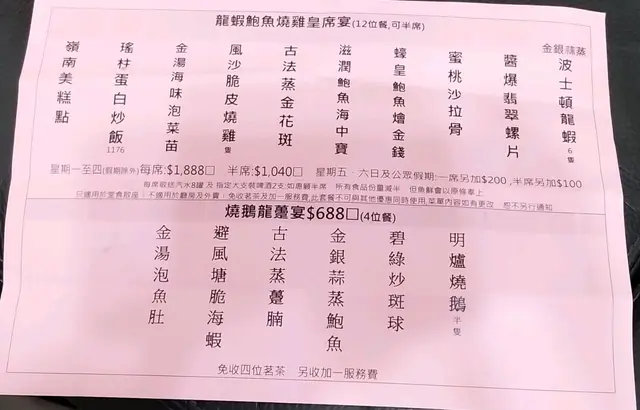 龍蝦鮑魚燒雞皇席宴(12位餐,可半席)
金銀蒜蒸波士頓龍蝦6隻
醬爆翡翠螺片
蜜桃沙拉骨
蠔皇鮑魚燴金錢
滋潤鮑魚海中寶
古法蒸金花斑
風沙脆皮燒雞隻
金湯海味泡菜苗
瑤柱蛋白炒飯1176
嶺南美糕點
星期一至四(假期除外)每席:$1,888□ 半席:$1,040□ 星期五、六日及公眾假期:一席另加$200,半席另加$100
每席敬送汽水8罐及指定大支裝啤酒2支;如惠顧半席 所有食品份量減半 但魚鮮會以原條奉上
只適用於堂食散座;不適用於廳房及外賣;免收茗茶及加一服務費,此套餐不可與其他優惠同時使用,菜單內容如有更改 恕不另行通知
燒鵝龍躉宴$688□(4位餐)
明爐燒鵝半隻
碧綠炒斑球
金銀蒜蒸鮑魚
古法蒸躉腩
避風塘脆海蝦
金湯泡魚肚
免收四位茗茶 另收加一服務費